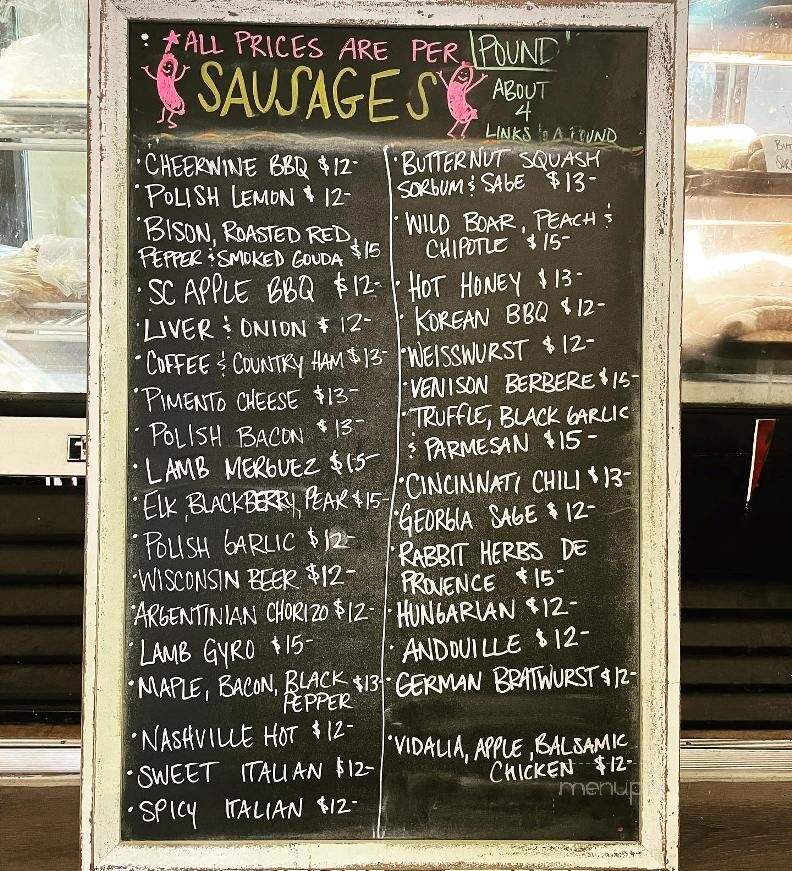 ALL PRICES ARE PER POUND
SAUSAGES
ABOUT
4
LINKS to A POUND
• CHEERWINE BBQ $12-
• POLISH LEMON $12-
• BISON, ROASTED RED,
PEPPER & SMOKED GOUDA $15
• SC APPLE BBQ $12-
• LIVER & ONION $12-
• COFFEE & COUNTRY HAM $13-
• PIMENTO CHEESE $13-
• POLISH BACON $13-
• LAMB MERGUEZ $15-
• ELK, BLACKBERRY, PEAR $15-
• POLISH GARLIC $12-
• WISCONSIN BEER $12-
• ARGENTINIAN CHORIZO $12-
• LAMB GYRO $15-
• MAPLE, BACON, BLACK $13-
PEPPER
• NASHVILLE HOT $12-
• SWEET ITALIAN $12-
• SPICY ITALIAN $12-
• BUTTERNUT SQUASH
SORGUM & SAGE $13-
• WILD BOAR, PEACH &
CHIPOTLE $15-
• HOT HONEY $13-
• KOREAN BBQ $12-
• WEISSWURST $12-
• VENISON BERBERE $15-
• TRUFFLE, BLACK GARLIC
& PARMESAN $15-
• CINCINNATI CHILI $13-
• GEORGIA SAGE $12-
• RABBIT HERBS DE
PROVENCE $15-
• HUNGARIAN $12-
• ANDOUILLE $12-
• GERMAN BRATWURST $12-
• VIDALIA, APPLE, BALSAMIC
CHICKEN $12-